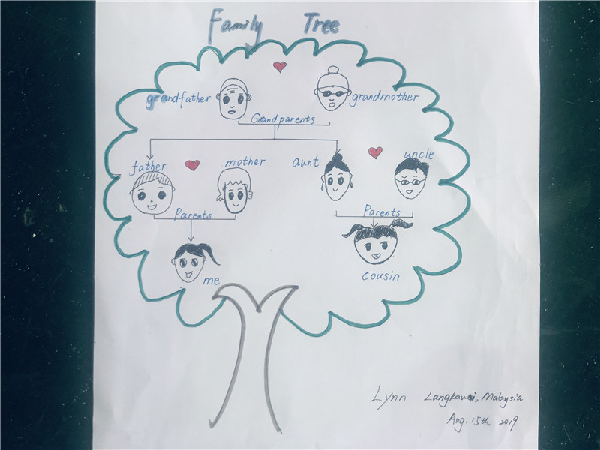 Family Tree
grandfather
grandmother
Grandparents
father
mother
aunt
uncle
Parents
Parents
me
cousin
Lynn Langkawi, Malaysia
Aug. 15th 2019